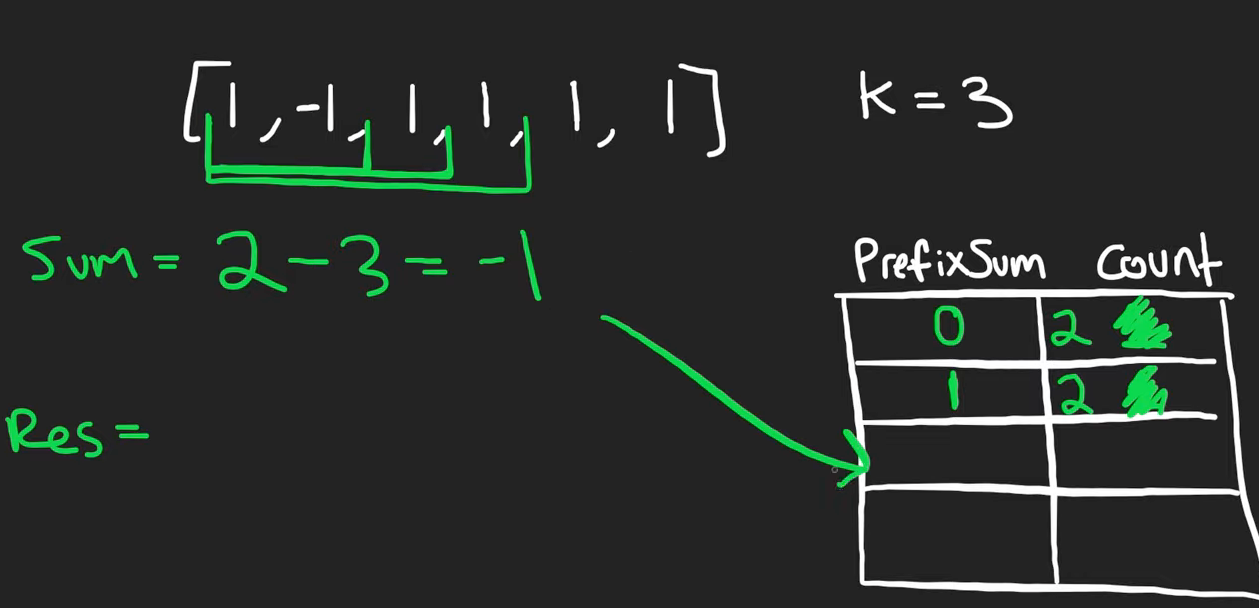 [1, -1, 1, 1, 1, 1] K = 3
Sum = 2 - 3 = -1
PrefixSum Count
0 2
1 2
Res =